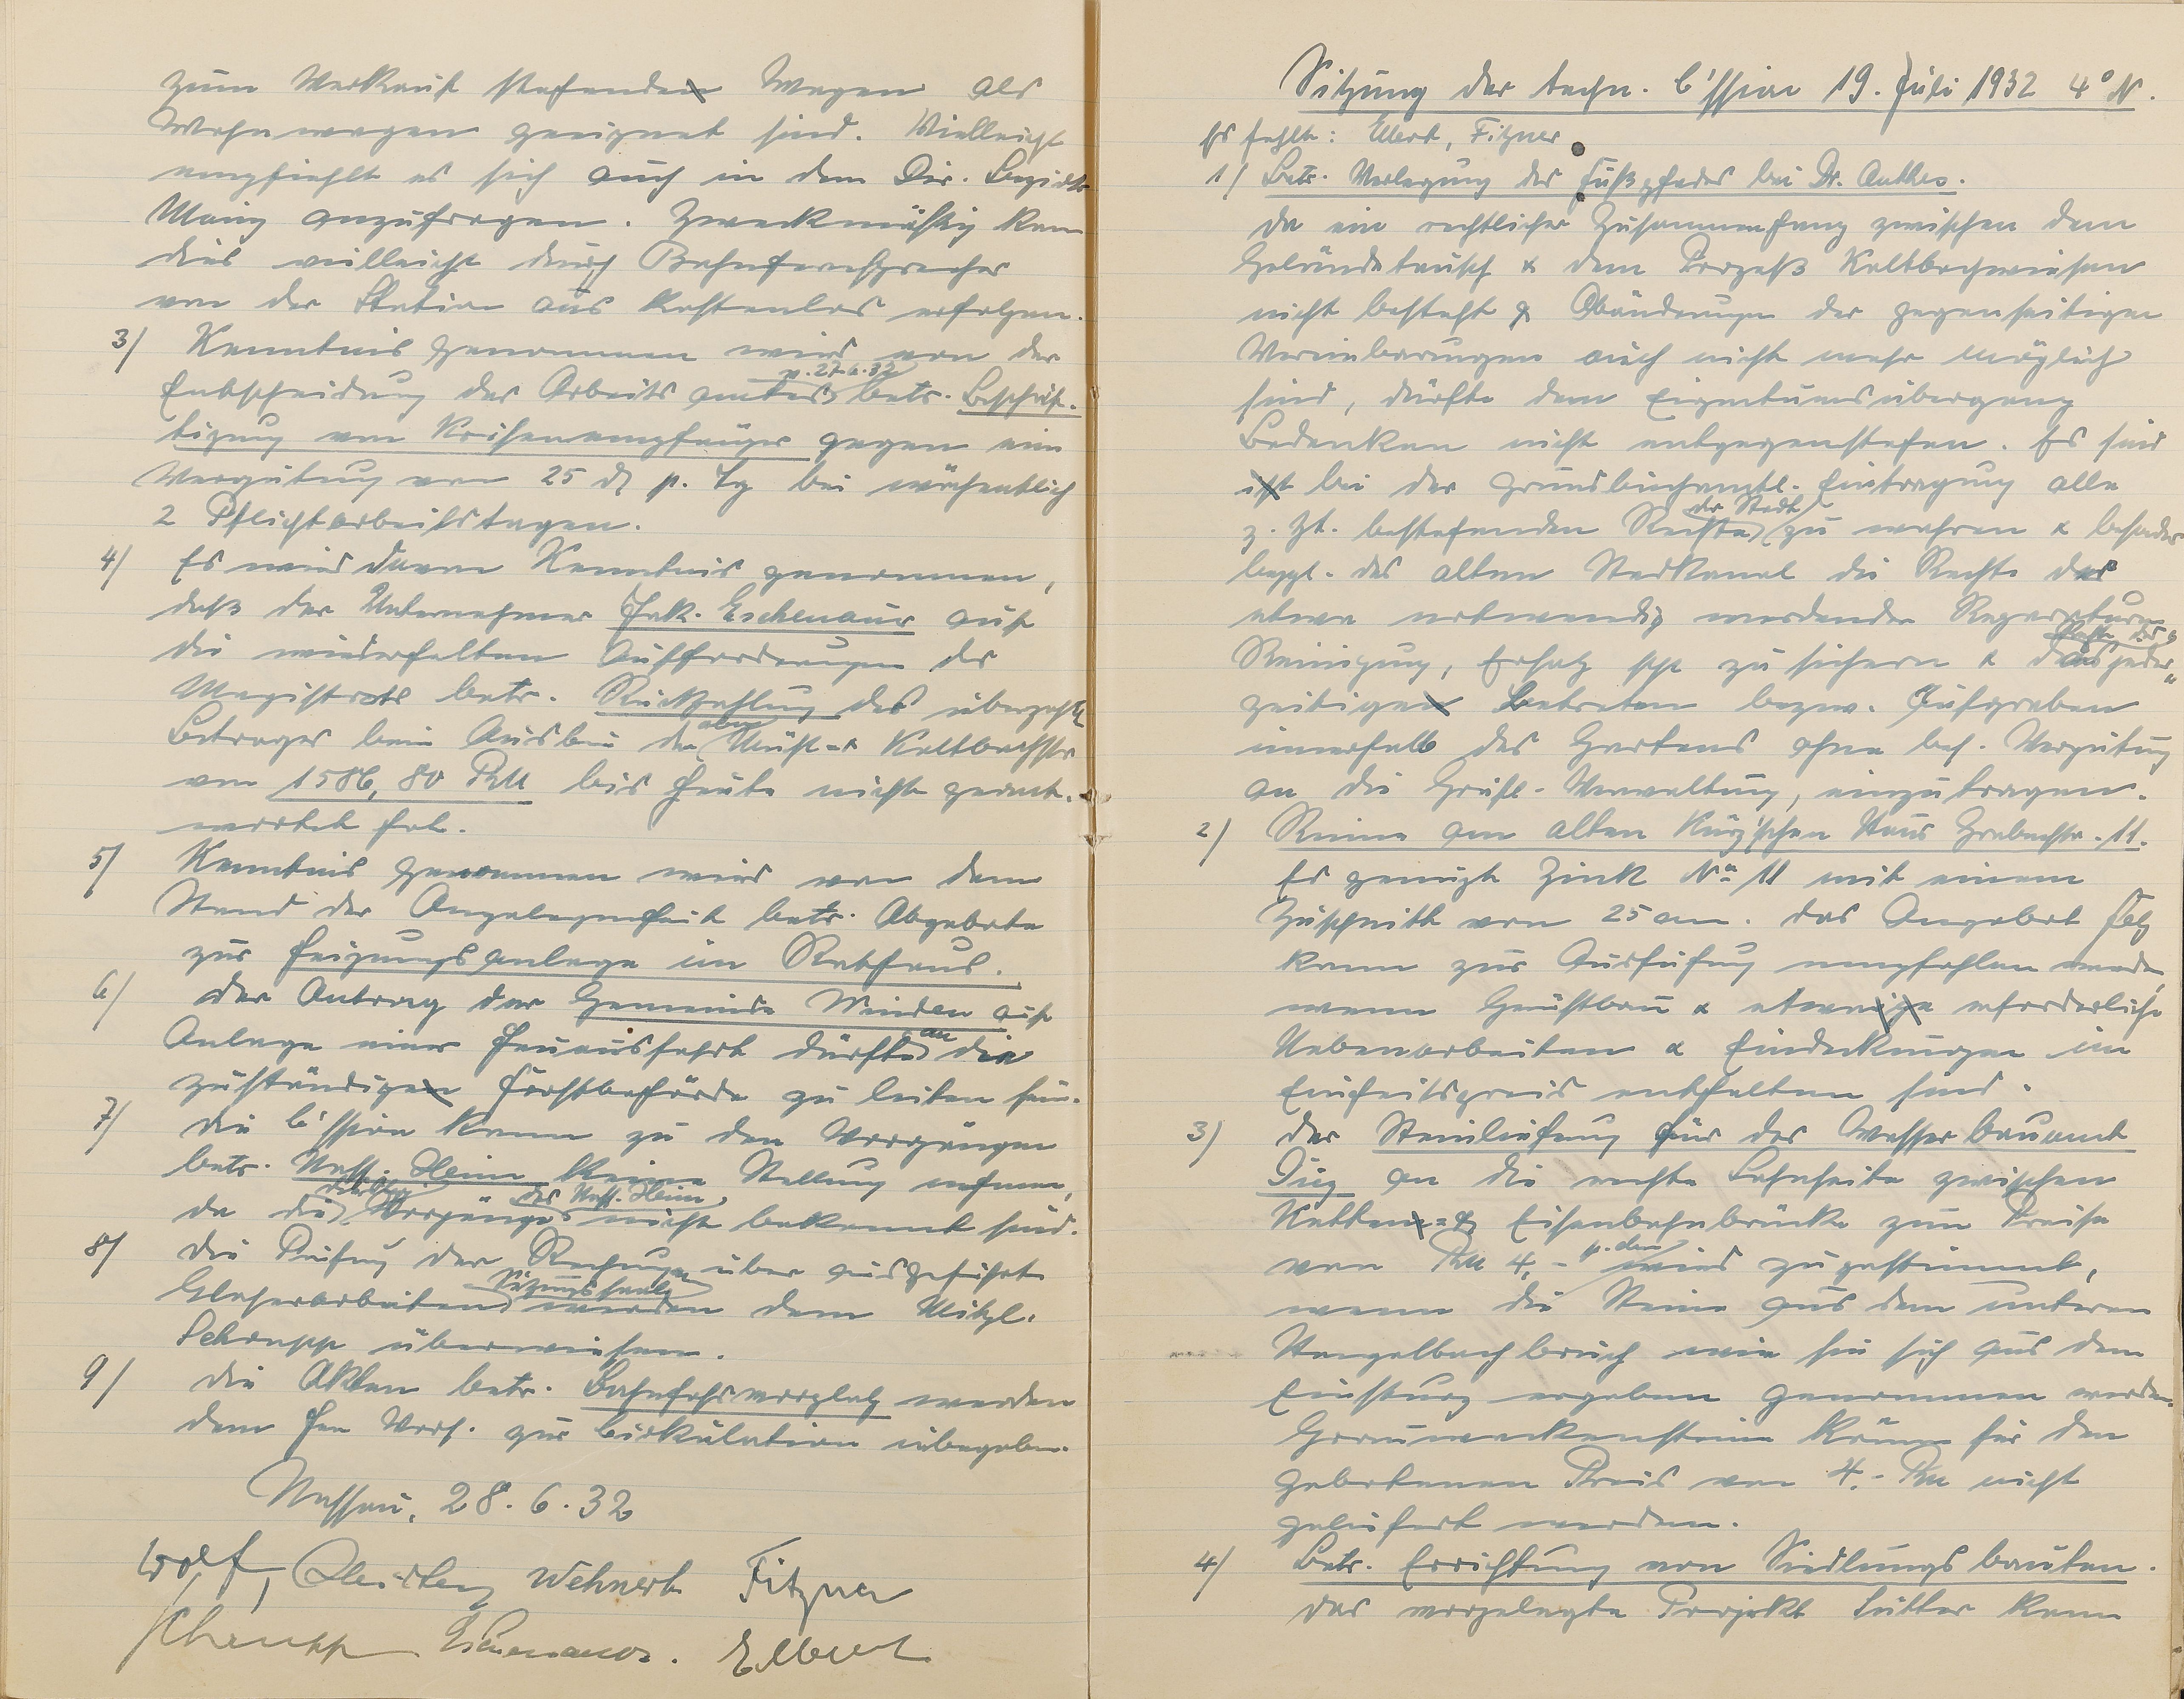 zum Verkauf stehenden Wagen als
Wohnwagen geeignet sind. Vielleicht
empfiehlt es sich auch in dem Dir. Bezirk
Mainz anzufragen. Zweckmäßig kann
dies vielleicht durch Bahnfernsprecher
von der Station aus kostenlos erfolgen.
3/ Kenntnis genommen wird von der
Entscheidung des Arbeitsamtes v. 27.6.32 betr. Beschäf-
tigung von Krisenempfänger gegen eine
Vergütung von 25 d p. Tg bei wöchentlich
2 Pflichtarbeitstagen.
4/ Es wird davon Kenntnis genommen,
daß der Unternehmer Jak. Eschenauer auf
die wiederholten Aufforderungen des
Magistrats betr. Rückzahlung des überzahlt
Betrages beim Ausbau der obern Mühl- & Kaltbachstr
von 1586,80 RM bis heute nicht geant-
wortet hat.
5/ Kenntnis genommen wird von dem
Stand der Angelegenheit betr. Abgebote
zur Heizungsanlage im Rathaus.
6/ Der Antrag der Gemeinde Winden auf
Anlage einer Holzausfahrt dürfte an die
zuständigen Forstbehörde zu leiten sein.
7/ Die C'ssion kann zu den Vorgängen
betr. Nass. Heim keine Stellung nehmen,
da die Vorgänge des Nass. Heim nicht bekannt sind.
8/ Die Prüfung der Rechnungen über ausgeführte
Glaserarbeiten Sitzungssaale werden dem Mitgl.
Schrupp überwiesen.
9/ Die Akten betr. Bahnhofsvorplatz werden
dem Hrn Vors. zur Cirkulation übergeben.
Nassau, 28.6.32
Wolf, Wehnert Fitzner
Schrupp Eschenauer. Elbert
Sitzung der techn. C'ssion 19. Juli 1932 4° N.
Es fehlt: Elbert, Fitzner
1/ Betr. Verlegung des Fußpfades bei Dr. Anthes.
Da ein rechtlicher Zusammenhang zwischen dem
Geländetausch & dem Prozeß Kaltbachwiesen
nicht besteht & Abänderungen der gegenseitigen
Vereinbarungen auch nicht mehr möglich
sind, dürfte dem Eigentumsübergang
Bedenken nicht entgegenstehen. Es sind
ist bei der grundbuchamtl. Eintragung alle
z. Zt. bestehenden Rechte der Stadt zu wahren & besonders
bezgl. des alten Kanal die Rechte der
etwa notwendig werdenden Reparaturen,
Reinigung, Ersatz zu sichern & das jeder-
zeitigen Betreten bezw. Aufgraben
innerhalb des Gartens ohne bes. Vergütung
an die Gräfl. Verwaltung, einzutragen.
2/ Rinne am alten Kurz'schen Haus Grabenstr. 11.
Es genügt Zink No 11 mit einem
Zuschnitt von 25 cm. Das Angebot
kann zur Ausführung empfohlen werden,
wenn Gerüstbau & etwaige erforderliche
Nebenarbeiten & Eindeckungen im
Einheitspreis enthalten sind.
3) Der Steinlieferung für das Wasserbauamt
Diez an die rechte Lahnseite zwischen
Ketten- & Eisenbahnbrücke zum Preise
von RM 4,- p. cbm wird zugestimmt,
wenn die Steine aus dem unteren
Stengelbachbruch wie sie sich aus dem
Einsturz ergeben genommen werden.
Grauwackensteine können für den
gebotenen Preis von 4.- RM nicht
geliefert werden.
4/ Betr. Errichtung von Siedlungsbauten.
Das vorgelegte Projekt kann